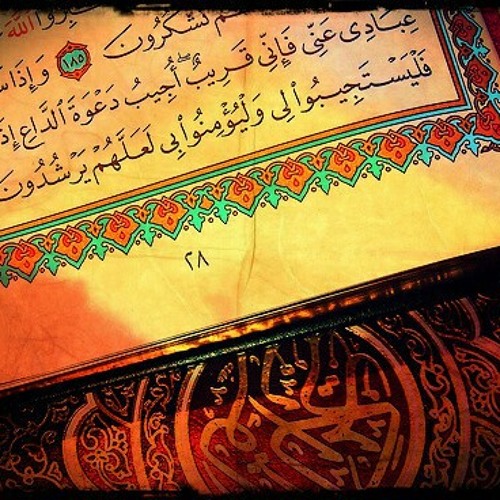 الله
تشكرون ١٨٥ وإذا
عبادى عنى فإنى قريب أجيب دعوة الداع إذا
فليستجيبوا لى وليؤمنوا بى لعلهم يرشدون
٢٨